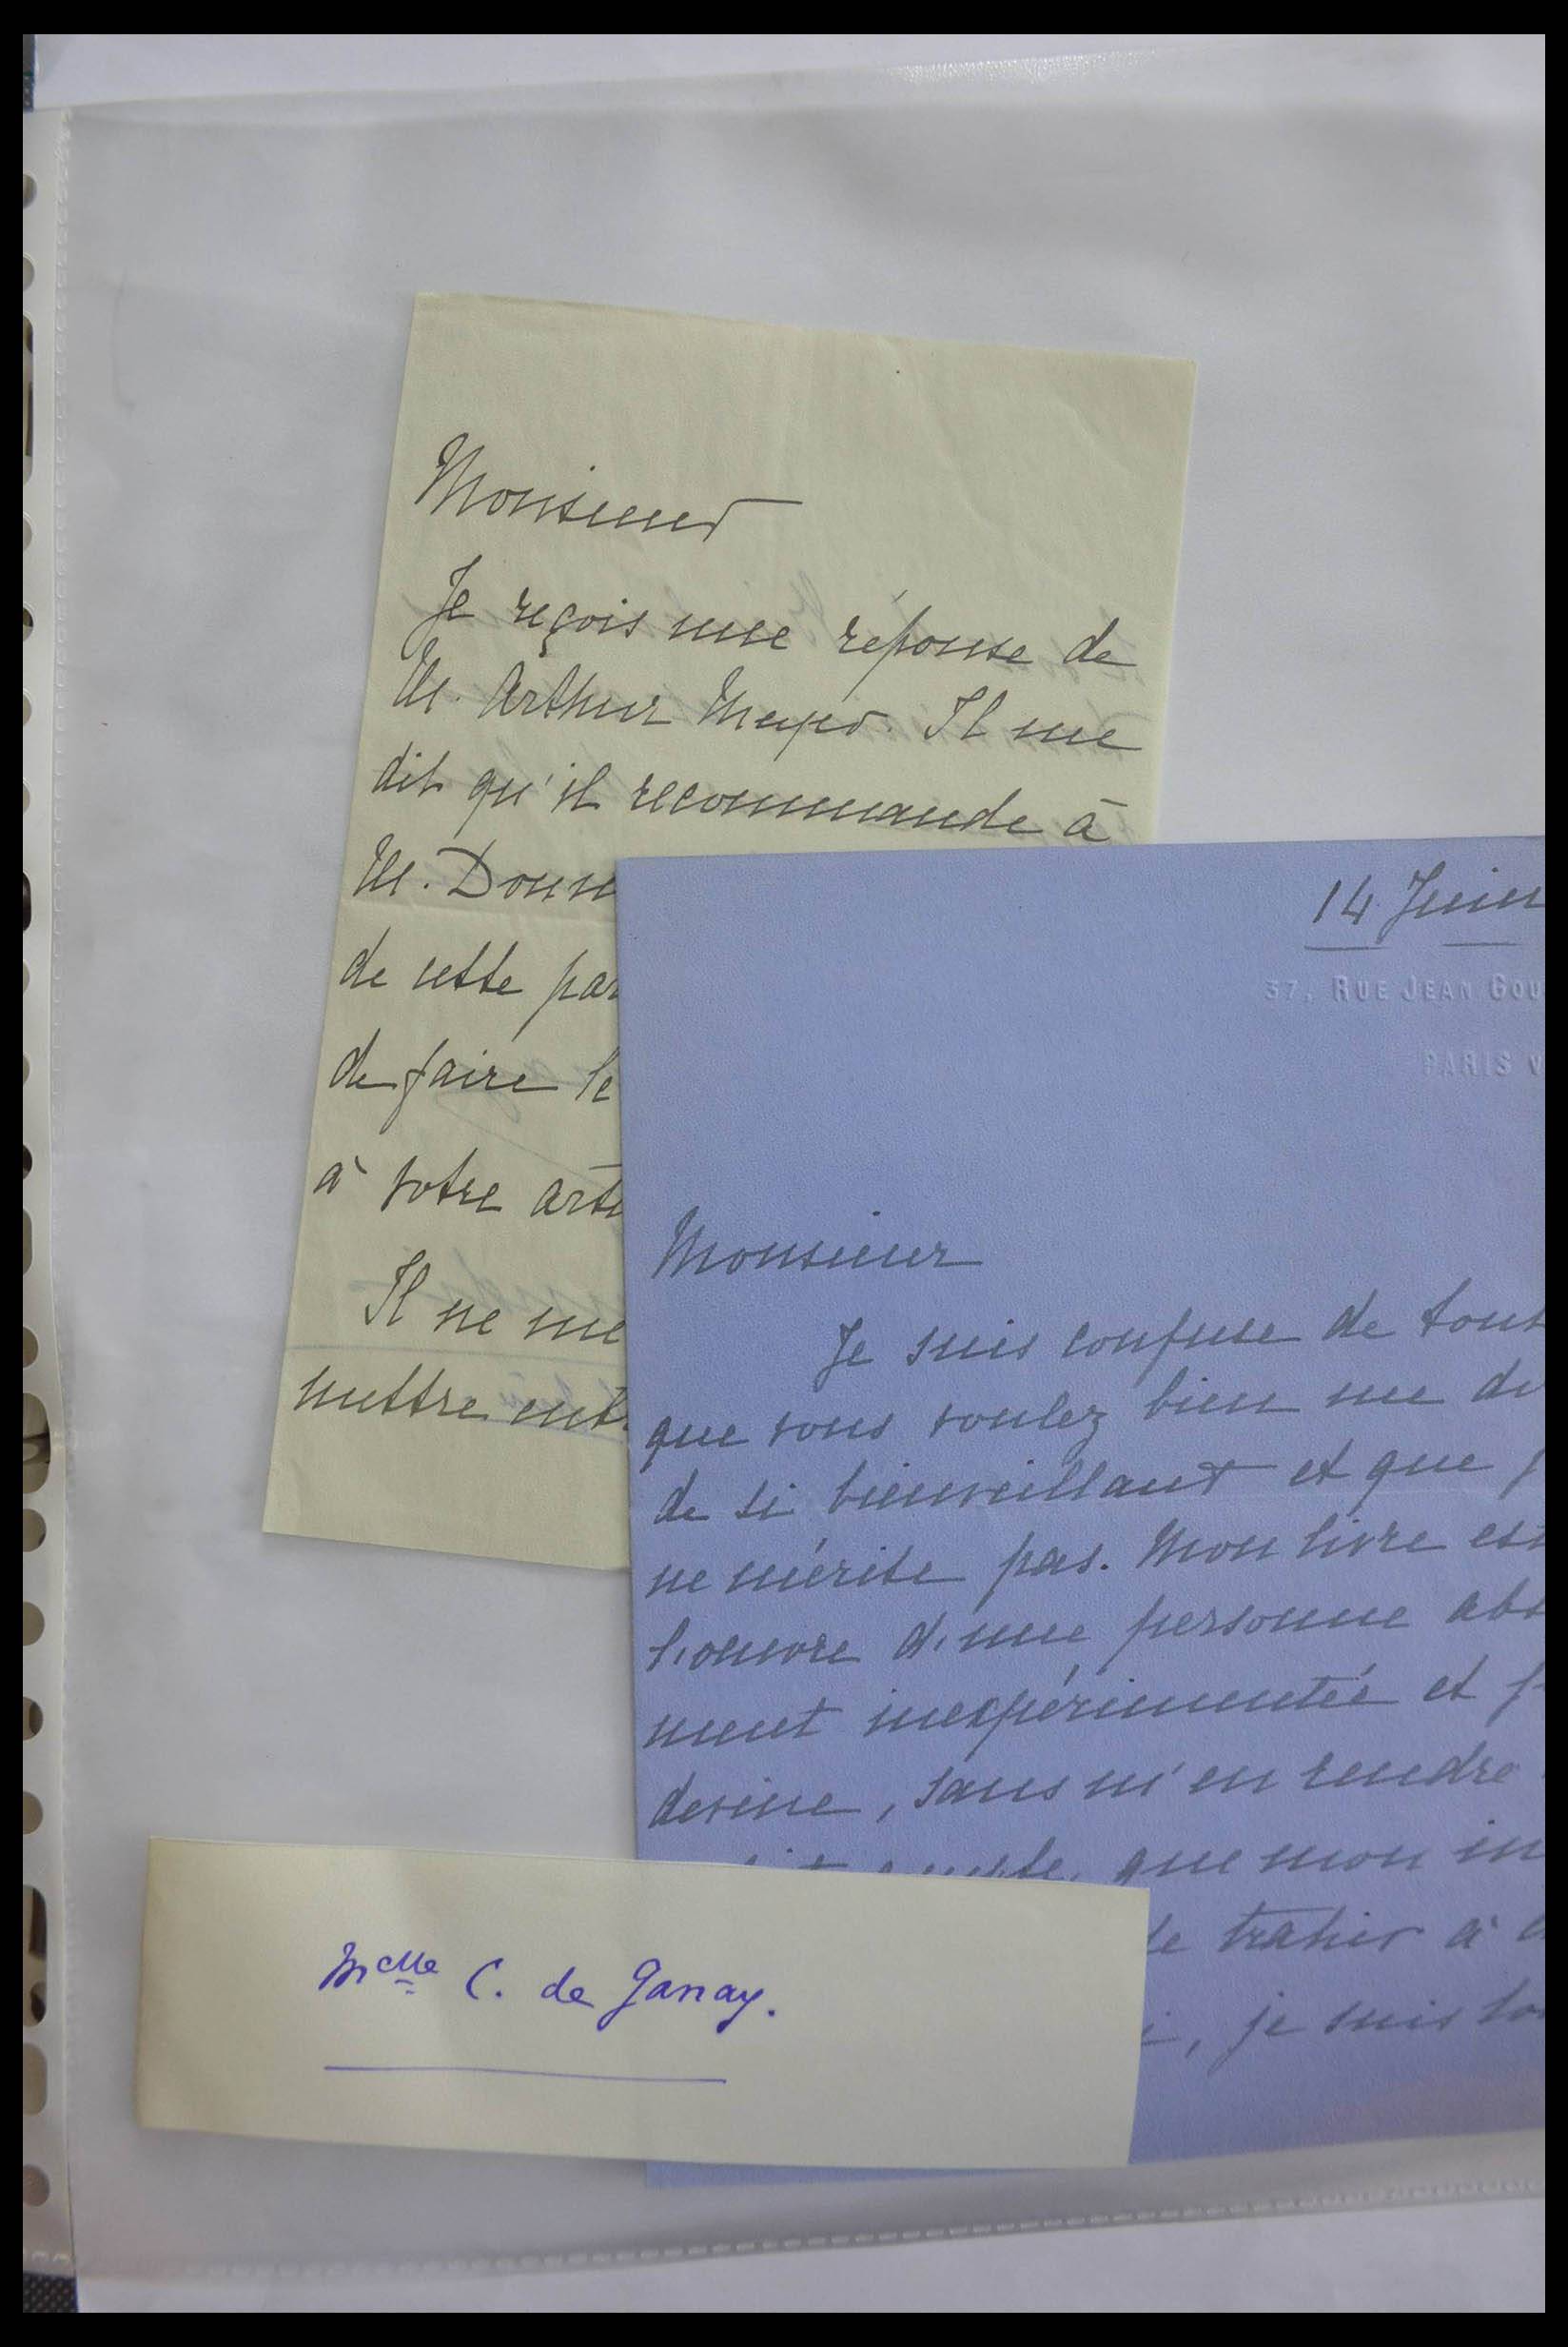 Monsieur
Je reçois une réponse de
M. Arthur Meyer. Il me
dit qu'il recommande à
M. Donn
de cette par
de faire le
à votre arti
Il ne me
mettre ent
14 Juin
37, RUE JEAN GOU
PARIS V
Monsieur
Je suis confuse de tout
que vous voulez bien me di
de si bienveillant et que j
ne mérite pas. Mon livre est
l'oeuvre d'une personne abs
ment inexpérimentée et j
devine, sans m'en rendre
compte, que mon in
de trahir à
i, je suis to
Melle C. de Ganay.